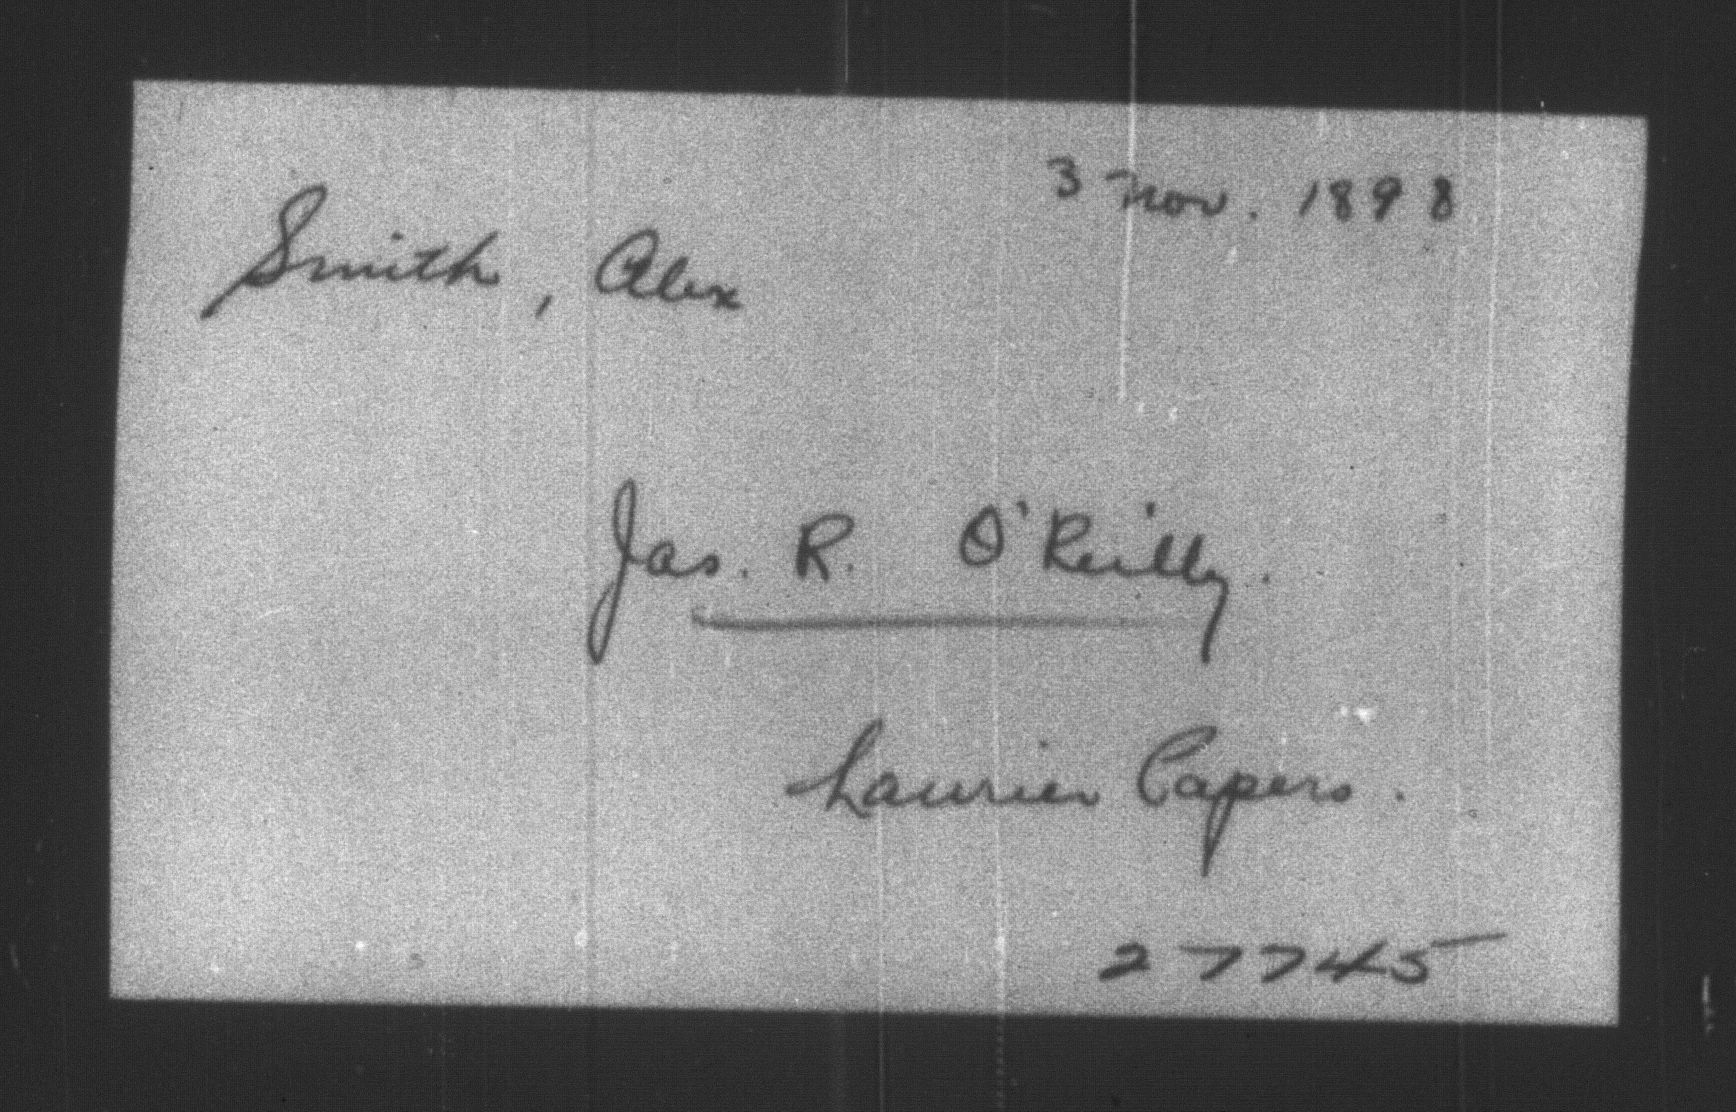 3 Nov. 1898
Smith, Alex
Jas. R. O'Reilly.
Laurier Papers.
27745